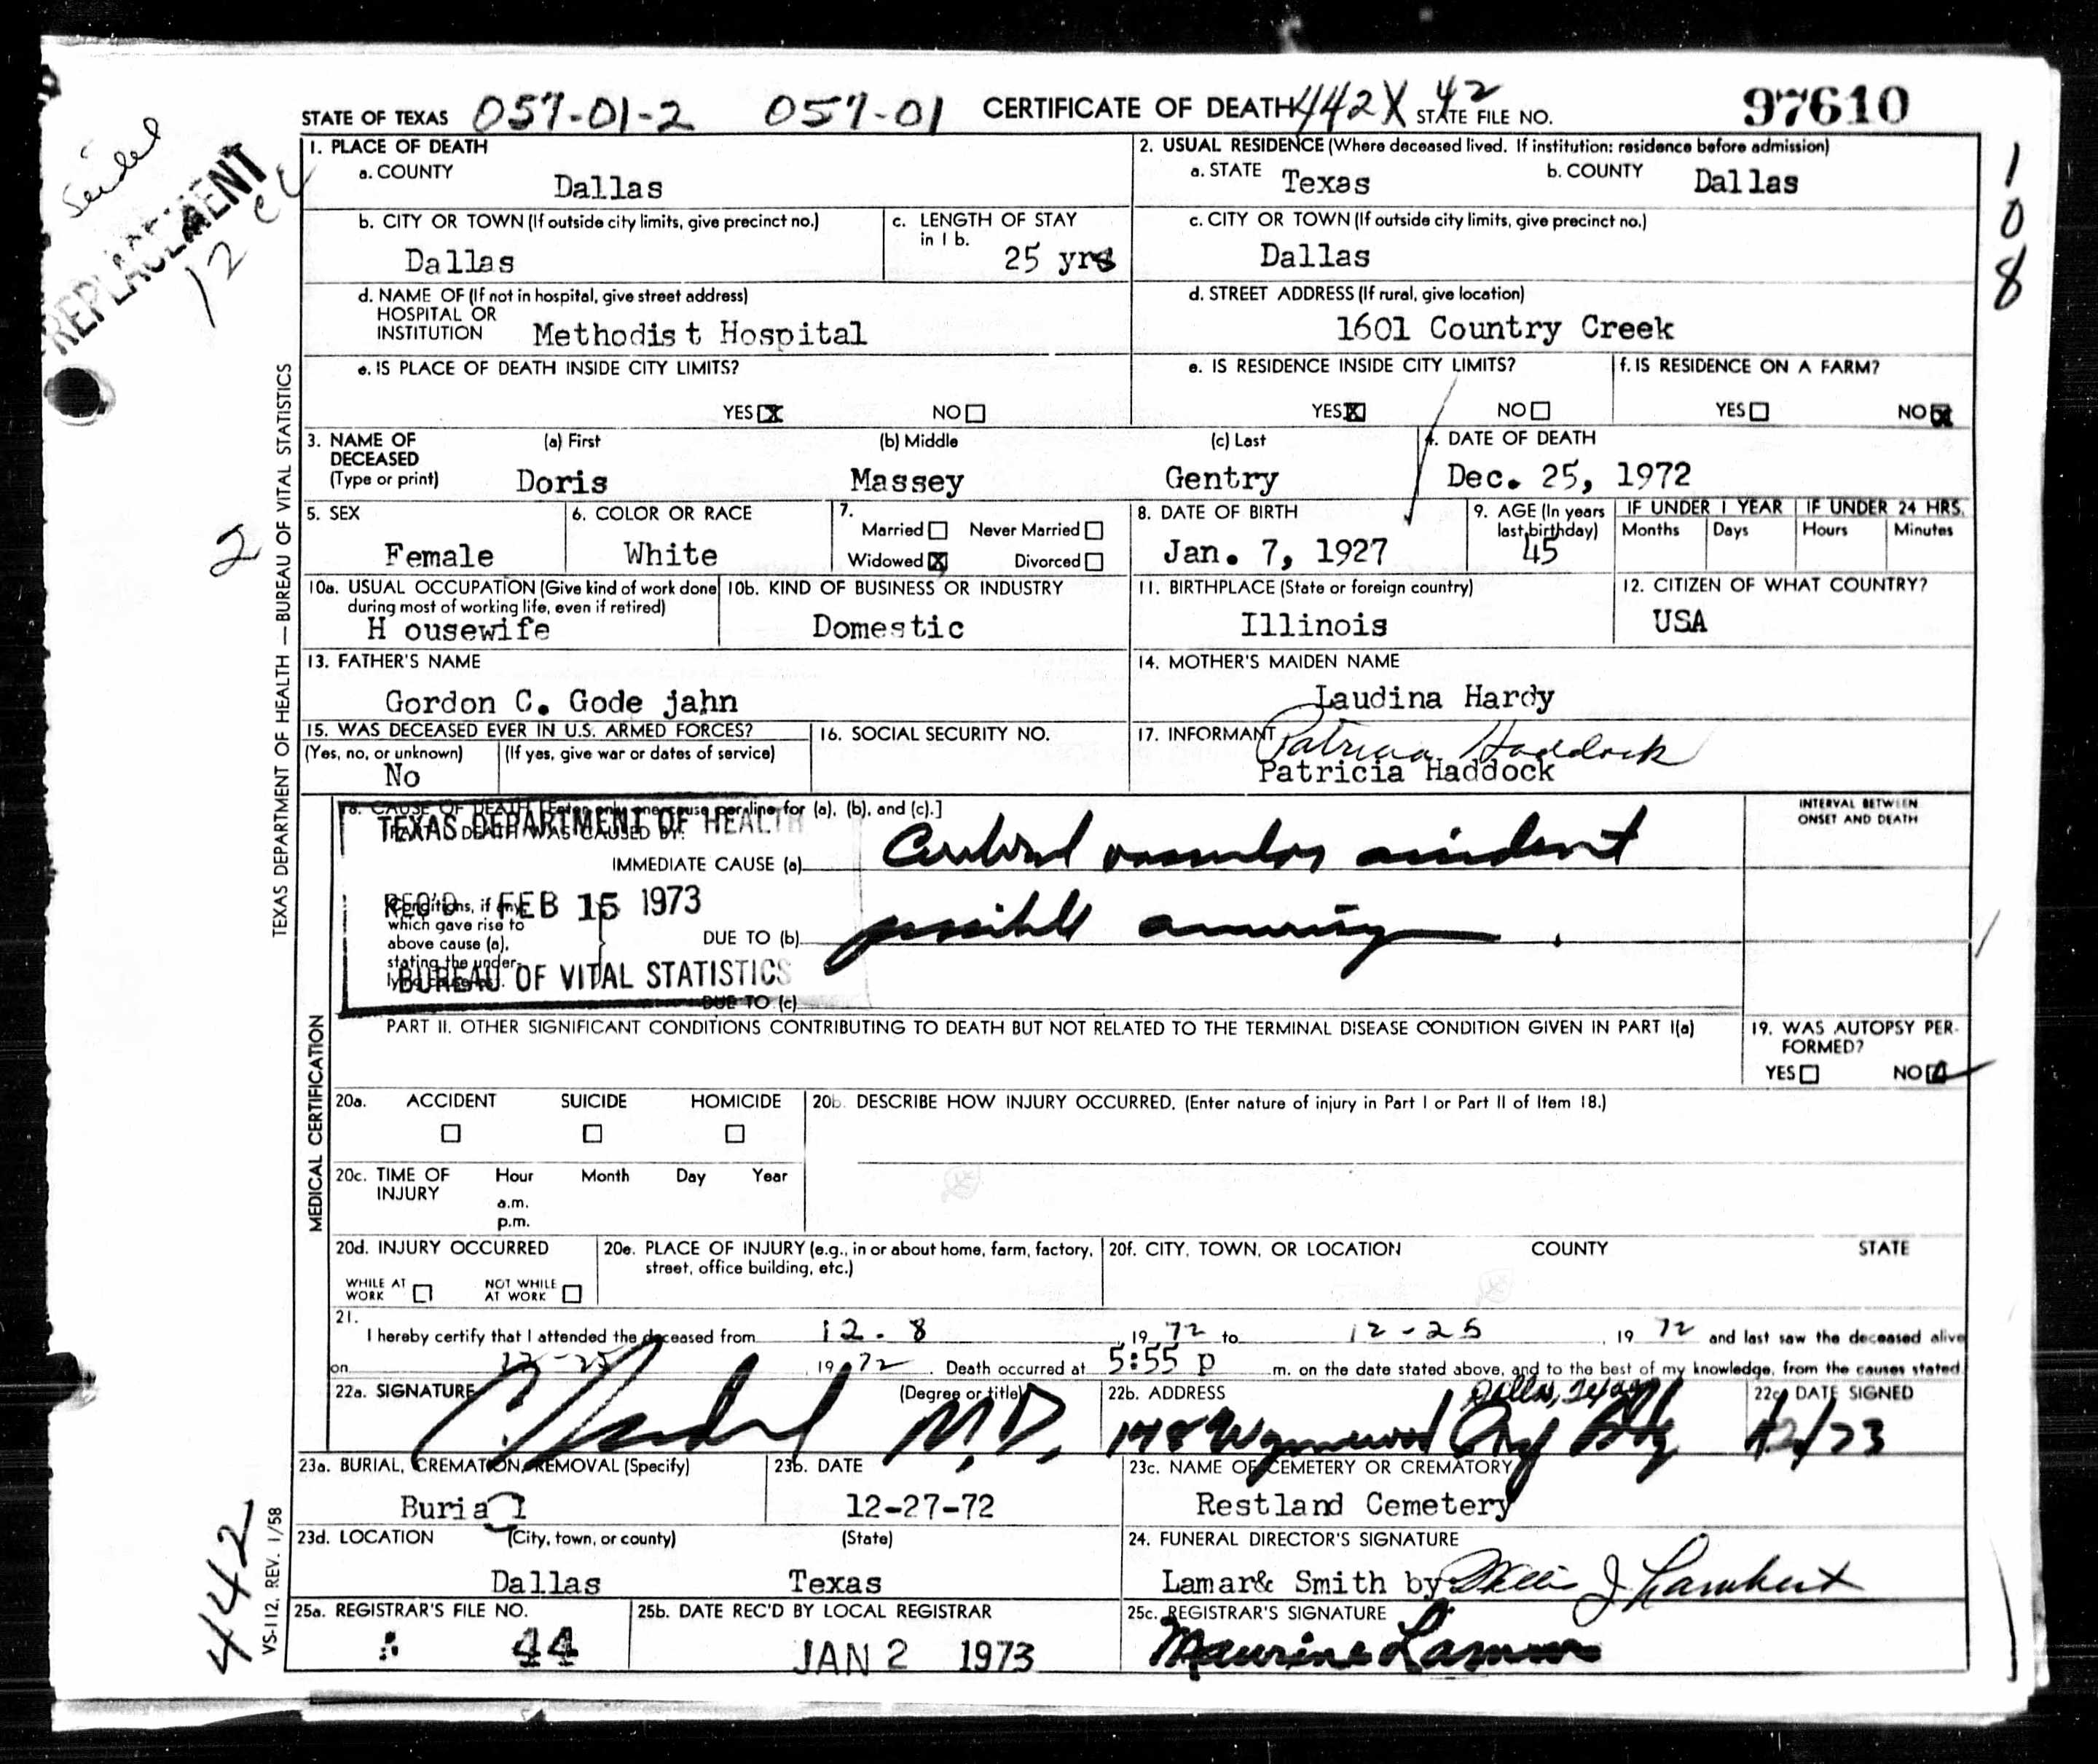 STATE OF TEXAS 057-01-2 057-01 CERTIFICATE OF DEATH 442X 42 STATE FILE NO. 97610
Seidel
REPLACEMENT
12
108
2
442
TEXAS DEPARTMENT OF HEALTH — BUREAU OF VITAL STATISTICS
VS-112, REV. 1/58
1. PLACE OF DEATH
a. COUNTY
Dallas
2. USUAL RESIDENCE (Where deceased lived. If institution: residence before admission)
a. STATE Texas b. COUNTY Dallas
b. CITY OR TOWN (If outside city limits, give precinct no.)
Dallas
c. LENGTH OF STAY
in 1 b.
25 yrs
c. CITY OR TOWN (If outside city limits, give precinct no.)
Dallas
d. NAME OF (If not in hospital, give street address)
HOSPITAL OR
INSTITUTION Methodist Hospital
d. STREET ADDRESS (If rural, give location)
1601 Country Creek
e. IS PLACE OF DEATH INSIDE CITY LIMITS?
YES X NO
e. IS RESIDENCE INSIDE CITY LIMITS?
YES X NO
f. IS RESIDENCE ON A FARM?
YES NO X
3. NAME OF (a) First (b) Middle (c) Last
DECEASED
(Type or print) Doris Massey Gentry
4. DATE OF DEATH
Dec. 25, 1972
5. SEX
Female
6. COLOR OR RACE
White
7.
Married Never Married
Widowed X Divorced
8. DATE OF BIRTH
Jan. 7, 1927
9. AGE (In years
last birthday)
45
IF UNDER 1 YEAR IF UNDER 24 HRS.
Months Days Hours Minutes
10a. USUAL OCCUPATION (Give kind of work done
during most of working life, even if retired)
H ousewife
10b. KIND OF BUSINESS OR INDUSTRY
Domestic
11. BIRTHPLACE (State or foreign country)
Illinois
12. CITIZEN OF WHAT COUNTRY?
USA
13. FATHER'S NAME
Gordon C. Gode jahn
14. MOTHER'S MAIDEN NAME
Laudina Hardy
15. WAS DECEASED EVER IN U.S. ARMED FORCES?
(Yes, no, or unknown) (If yes, give war or dates of service)
No
16. SOCIAL SECURITY NO.
17. INFORMANT Patricia Haddock
Patricia Haddock
MEDICAL CERTIFICATION
18. CAUSE OF DEATH [Enter only one cause per line for (a), (b), and (c).]
PART I. DEATH WAS CAUSED BY:
IMMEDIATE CAUSE (a) Cerebral vascular accident
Conditions, if any,
which gave rise to
above cause (a),
stating the under-
lying cause last.
DUE TO (b) possible
DUE TO (c)
TEXAS DEPARTMENT OF HEALTH
REC'D FEB 15 1973
BUREAU OF VITAL STATISTICS
INTERVAL BETWEEN
ONSET AND DEATH
PART II. OTHER SIGNIFICANT CONDITIONS CONTRIBUTING TO DEATH BUT NOT RELATED TO THE TERMINAL DISEASE CONDITION GIVEN IN PART I(a)
19. WAS AUTOPSY PER-
FORMED?
YES NO
20a. ACCIDENT SUICIDE HOMICIDE
20b. DESCRIBE HOW INJURY OCCURRED. (Enter nature of injury in Part I or Part II of Item 18.)
20c. TIME OF Hour Month Day Year
INJURY
a.m.
p.m.
20d. INJURY OCCURRED
WHILE AT
WORK
NOT WHILE
AT WORK
20e. PLACE OF INJURY (e.g., in or about home, farm, factory,
street, office building, etc.)
20f. CITY, TOWN, OR LOCATION COUNTY STATE
21.
I hereby certify that I attended the deceased from 12-8, 1972 to 12-25, 1972 and last saw the deceased alive
on 12-25, 1972. Death occurred at 5:55 p m. on the date stated above, and to the best of my knowledge, from the causes stated.
22a. SIGNATURE (Degree or title)
M.D.
22b. ADDRESS
Dallas, Texas
Wynnewood Prof Bldg
22c. DATE SIGNED
23a. BURIAL, CREMATION, REMOVAL (Specify)
Burial
23b. DATE
12-27-72
23c. NAME OF CEMETERY OR CREMATORY
Restland Cemetery
23d. LOCATION (City, town, or county) (State)
Dallas Texas
24. FUNERAL DIRECTOR'S SIGNATURE
Lamar& Smith by J Lambert
25a. REGISTRAR'S FILE NO.
44
25b. DATE REC'D BY LOCAL REGISTRAR
JAN 2 1973
25c. REGISTRAR'S SIGNATURE
Maurine